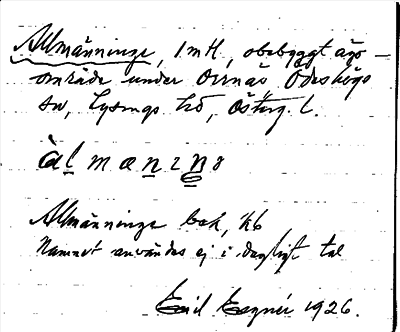 Allmänninge, 1 mtl, obebyggt ägo-
område under Orrnäs Ödeshögs
sn, Lysings hd, Österg. l.
àl mæniŋə
Allmänninge bek, kb
Namnet användes ej i dagligt tal
Emil 1926.